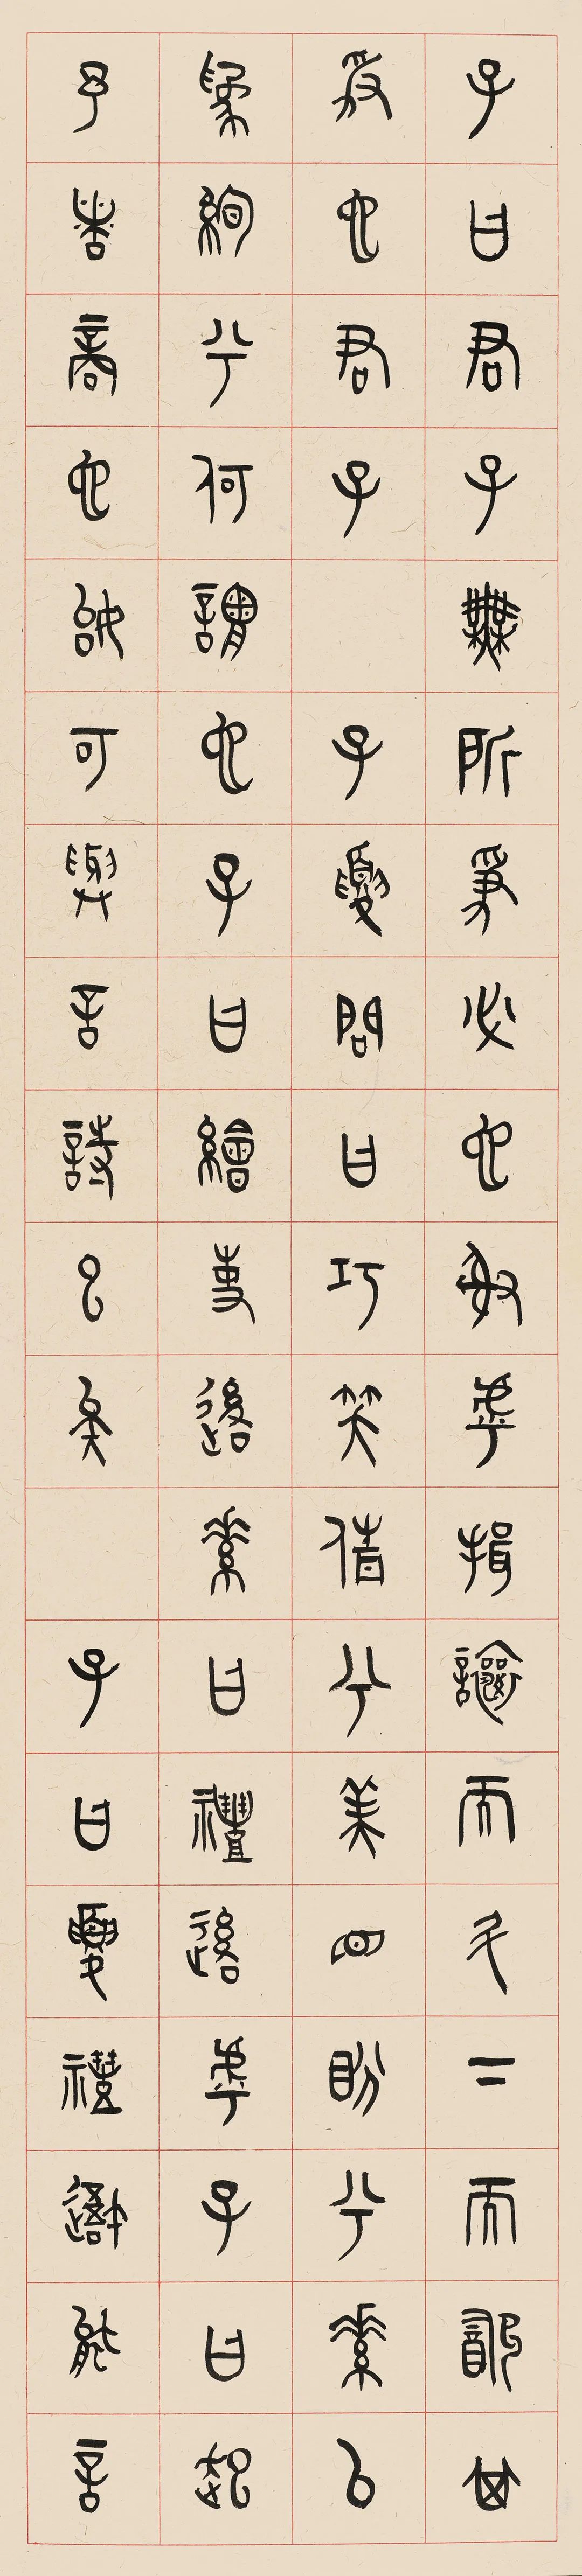 子曰君子無所爭必也射乎揖讓而升下而飲其
爭也君子 子夏問曰巧笑倩兮美目盼兮素以
為絢兮何謂也子曰繪事後素曰禮後乎子曰起
予者商也始可與言詩已矣 子曰夏禮吾能言